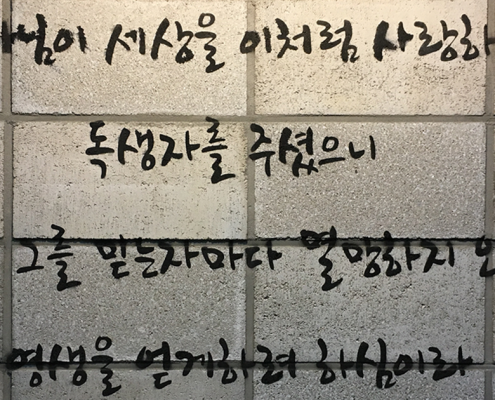 님이 세상을 이처럼 사랑하
독생자를 주셨으니
그를 믿는자마다 멸망하지
영생을 얻게하려 하심이라